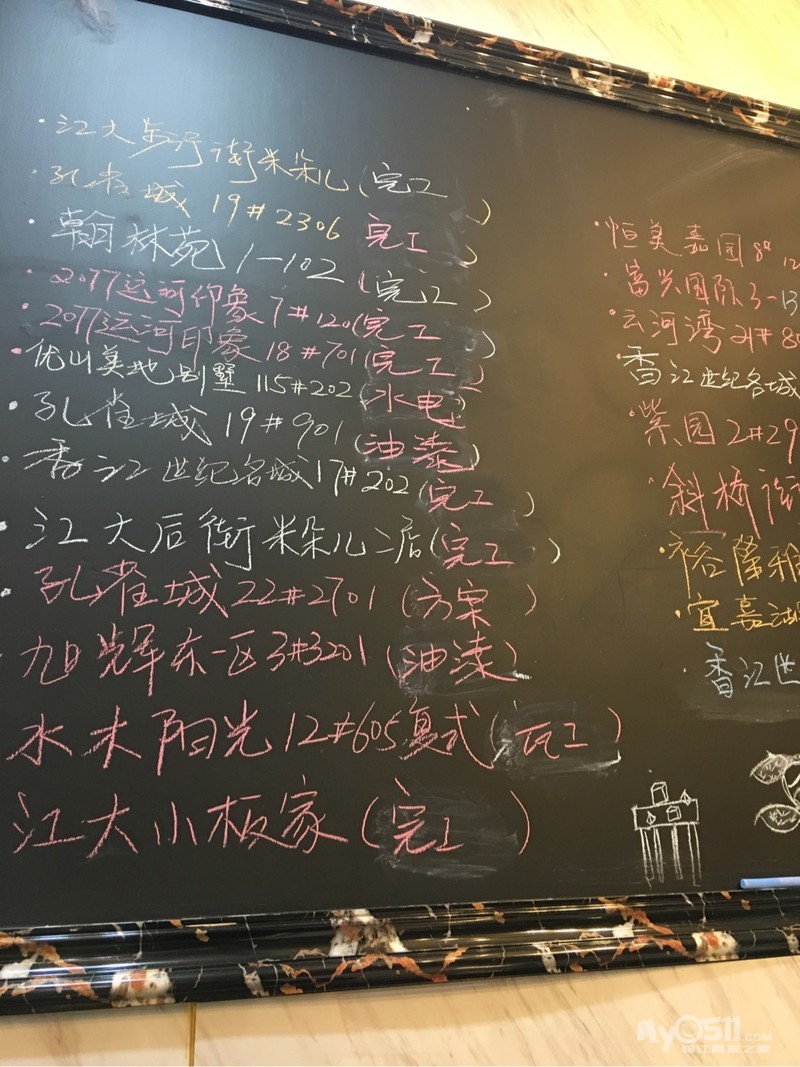 ·江大步行街米朵儿(完工)
·孔雀城 19#2306 完工)
·翰林苑 1-102 (完工)
·2077运河印象 7#120(完工)
·2077运河印象 18#701(完工)
·优山美地别墅 115#202(水电)
·孔雀城 19#901(油漆)
·香江世纪名城17#202(完工)
·江大后街米朵儿二店(完工)
·孔雀城22#2701(方案)
·旭辉东一区3#3201(油漆)
水木阳光12#605复式(瓦工)
江大小板家(完工)
·恒美嘉园8#
·富兴国际3-13
·云河湾21#80
·香江世纪名城
·紫园2#29
·斜桥街
·裕隆雅
·宜嘉湖
·香江世
My0511.COM